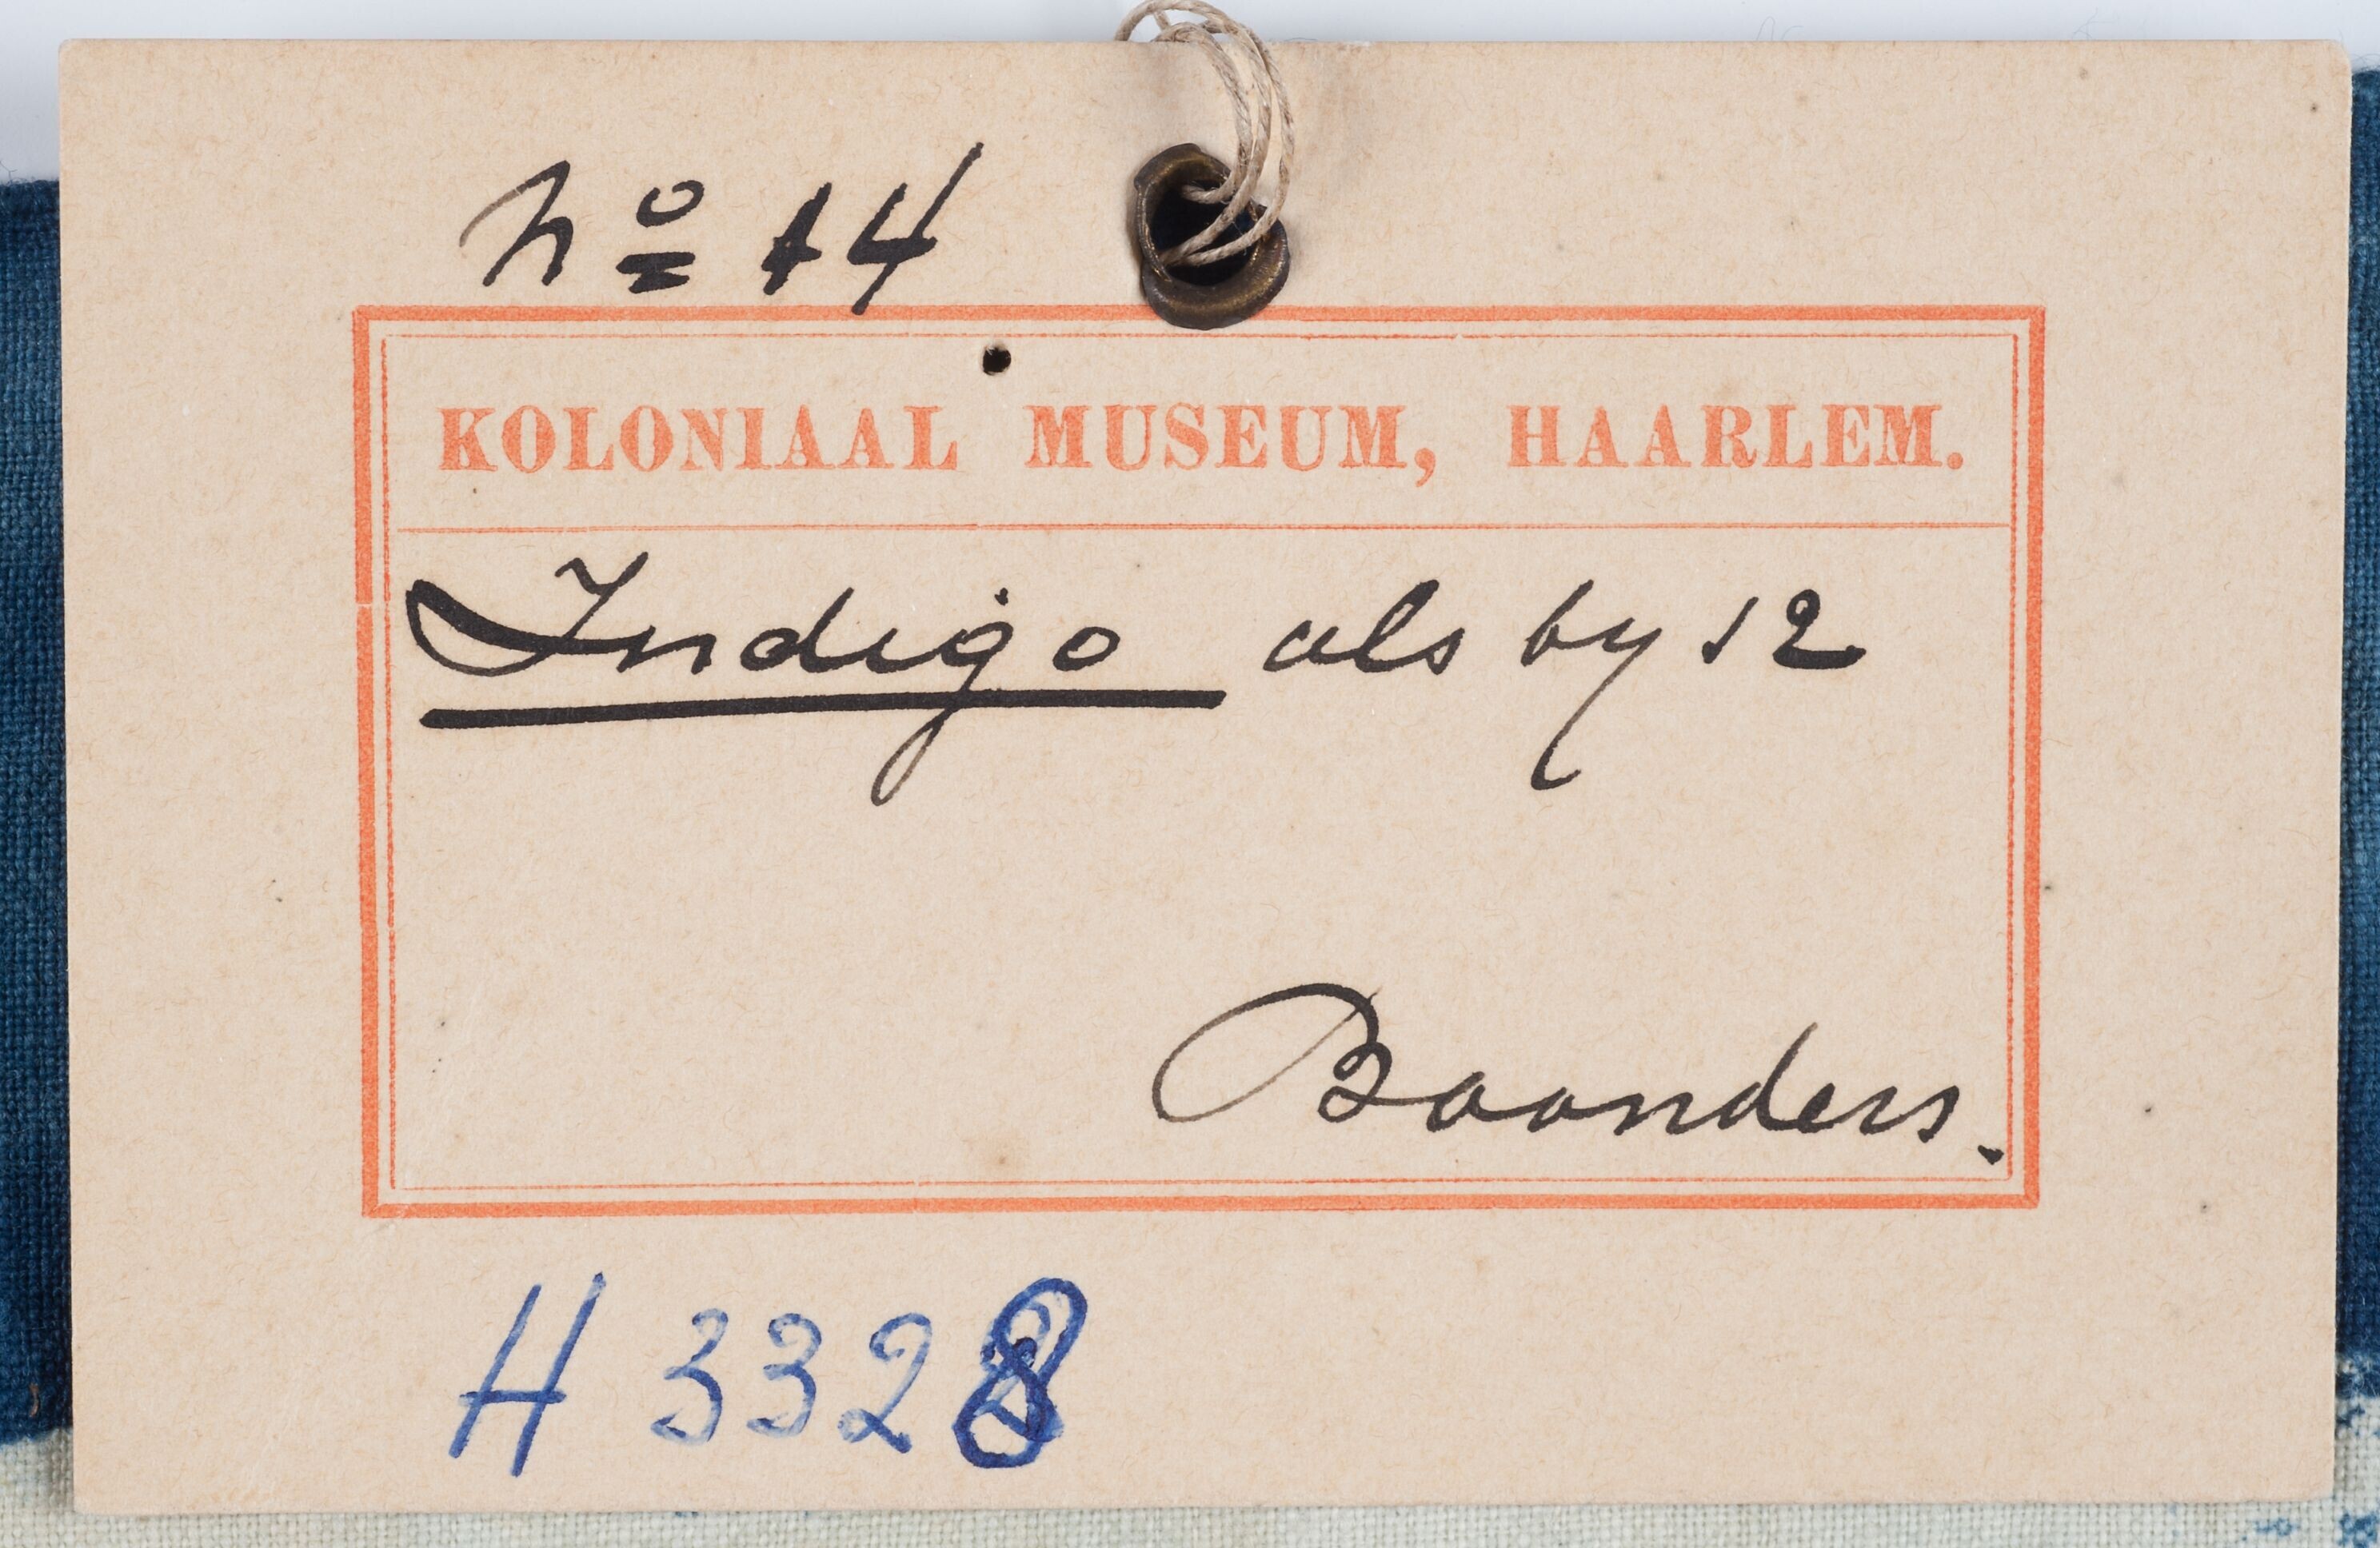 No 14
KOLONIAAL MUSEUM, HAARLEM.
Indigo als by 12
Baanders.
H 3328